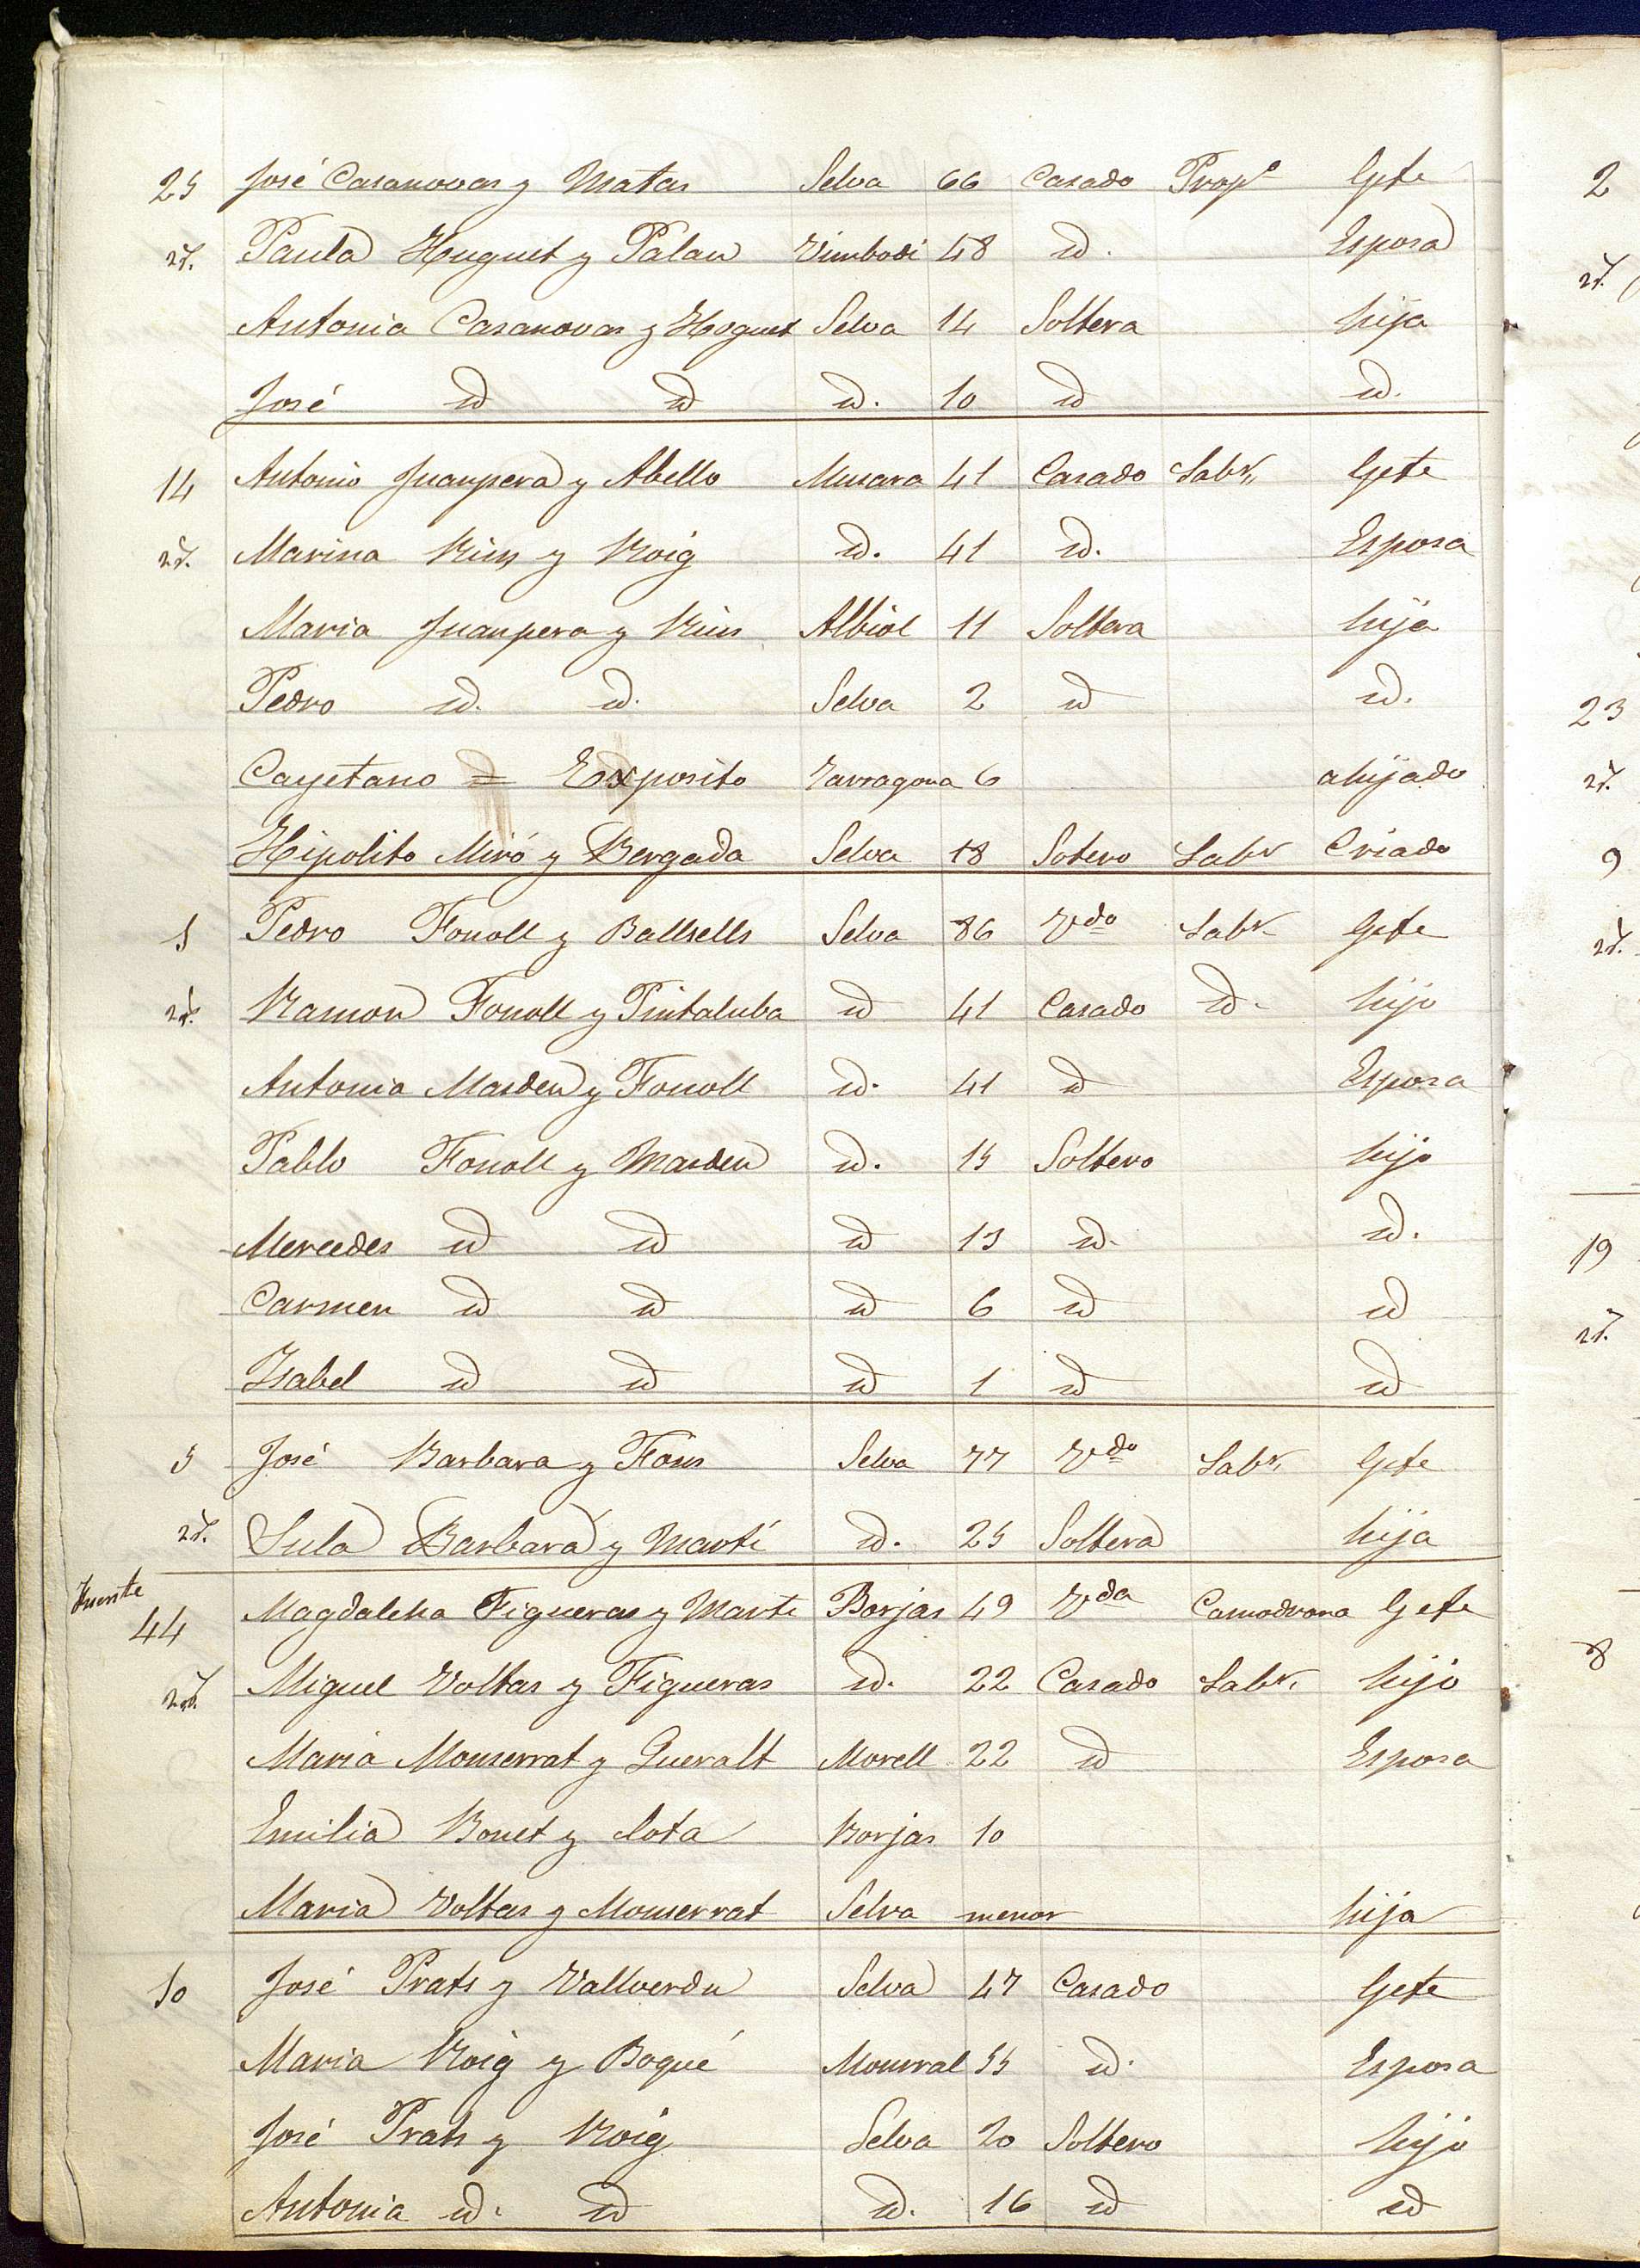 25 José Casanovas y Matas Selva 66 Casado Propº Gefe
id. Paula Huguet y Palau Vimbodi 48 id. Esposa
Antonia Casanovas y Huguet Selva 14 Soltera hija
José id id id. 10 id id.
14 Antonio Juanpera y Abello Musara 41 Casado Labr. Gefe
id. Marina Rius y Roig id. 41 id. Esposa
Maria Juanpera y Rius Albiol 11 Soltera hija
Pedro id. id. Selva 2 id id.
Cayetano = Exposito Tarragona 6 ahijado
Hipolito Miró y Bergada Selva 18 Sotero Labr Criado
5 Pedro Fonoll y Ballsells Selva 86 Vdo Labr Gefe
id. Ramon Fonoll y Pintaluba id 41 Casado id. hijo
Antonia Masdeu y Fonoll id. 41 id Esposa
Pablo Fonoll y Masdeu id. 15 Soltero hijo
Mercedes id id id 13 id. id.
Carmen id id id 6 id id
Isabel id id id 1 id id
5 José Barbara y Fons Selva 77 Vdo Labr. Gefe
id. Barbará y Martí id. 25 Soltera hija
Fuente
44 Magdalena Figueras y Marti Borjas 49 Vda Comadrona Gefe
id. Miguel Voltas y Figueras id. 22 Casado Labr. hijo
Maria Monserrat y Queralt Morell 22 id Esposa
Emilia Bonet y Borjas 10
Maria Voltas y Monserrat Selva menor hija
10 José Prats y Vallverdu Selva 47 Casado Gefe
Maria Roig y Boqué Monral 55 id. Esposa
José Prats y Roig Selva 20 Soltero hijo
Antonia id. id id. 16 id id
2
id.
23
id.
9
id.
19
id.
8